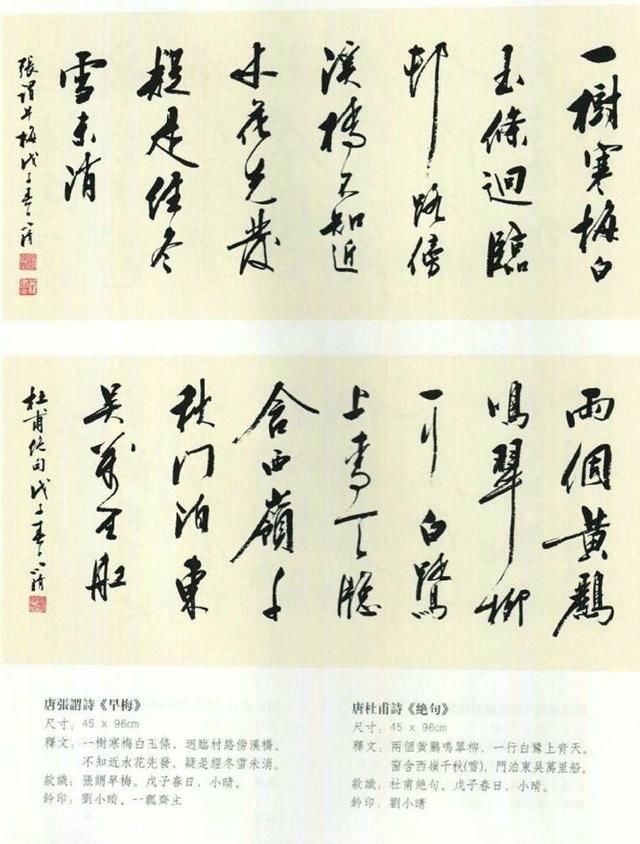 一樹寒梅白
玉條迴臨
邨路傍
溪橋不知近
水花先發
疑是經冬
雪未消
張謂早梅戊子春日小晴
兩個黃鸝
鳴翠柳
一行白鷺
上青天窗
含西嶺千
秋門泊東
吳萬里船
杜甫絕句戊子春日小晴
唐張謂詩《早梅》
尺寸：45 x 96cm
釋文：一樹寒梅白玉條，迥臨村路傍溪橋。
不知近水花先發，疑是經冬雪未消。
款識：張謂早梅。戊子春日、小晴。
鈐印：劉小晴、一瓢齋主
唐杜甫詩《絶句》
尺寸：45 x 96cm
釋文：兩個黃鸝鳴翠柳，一行白鷺上青天。
窗含西嶺千秋(雪)，門泊東吳萬里船。
款識：杜甫絕句。戊子春日、小晴。
鈐印：劉小晴